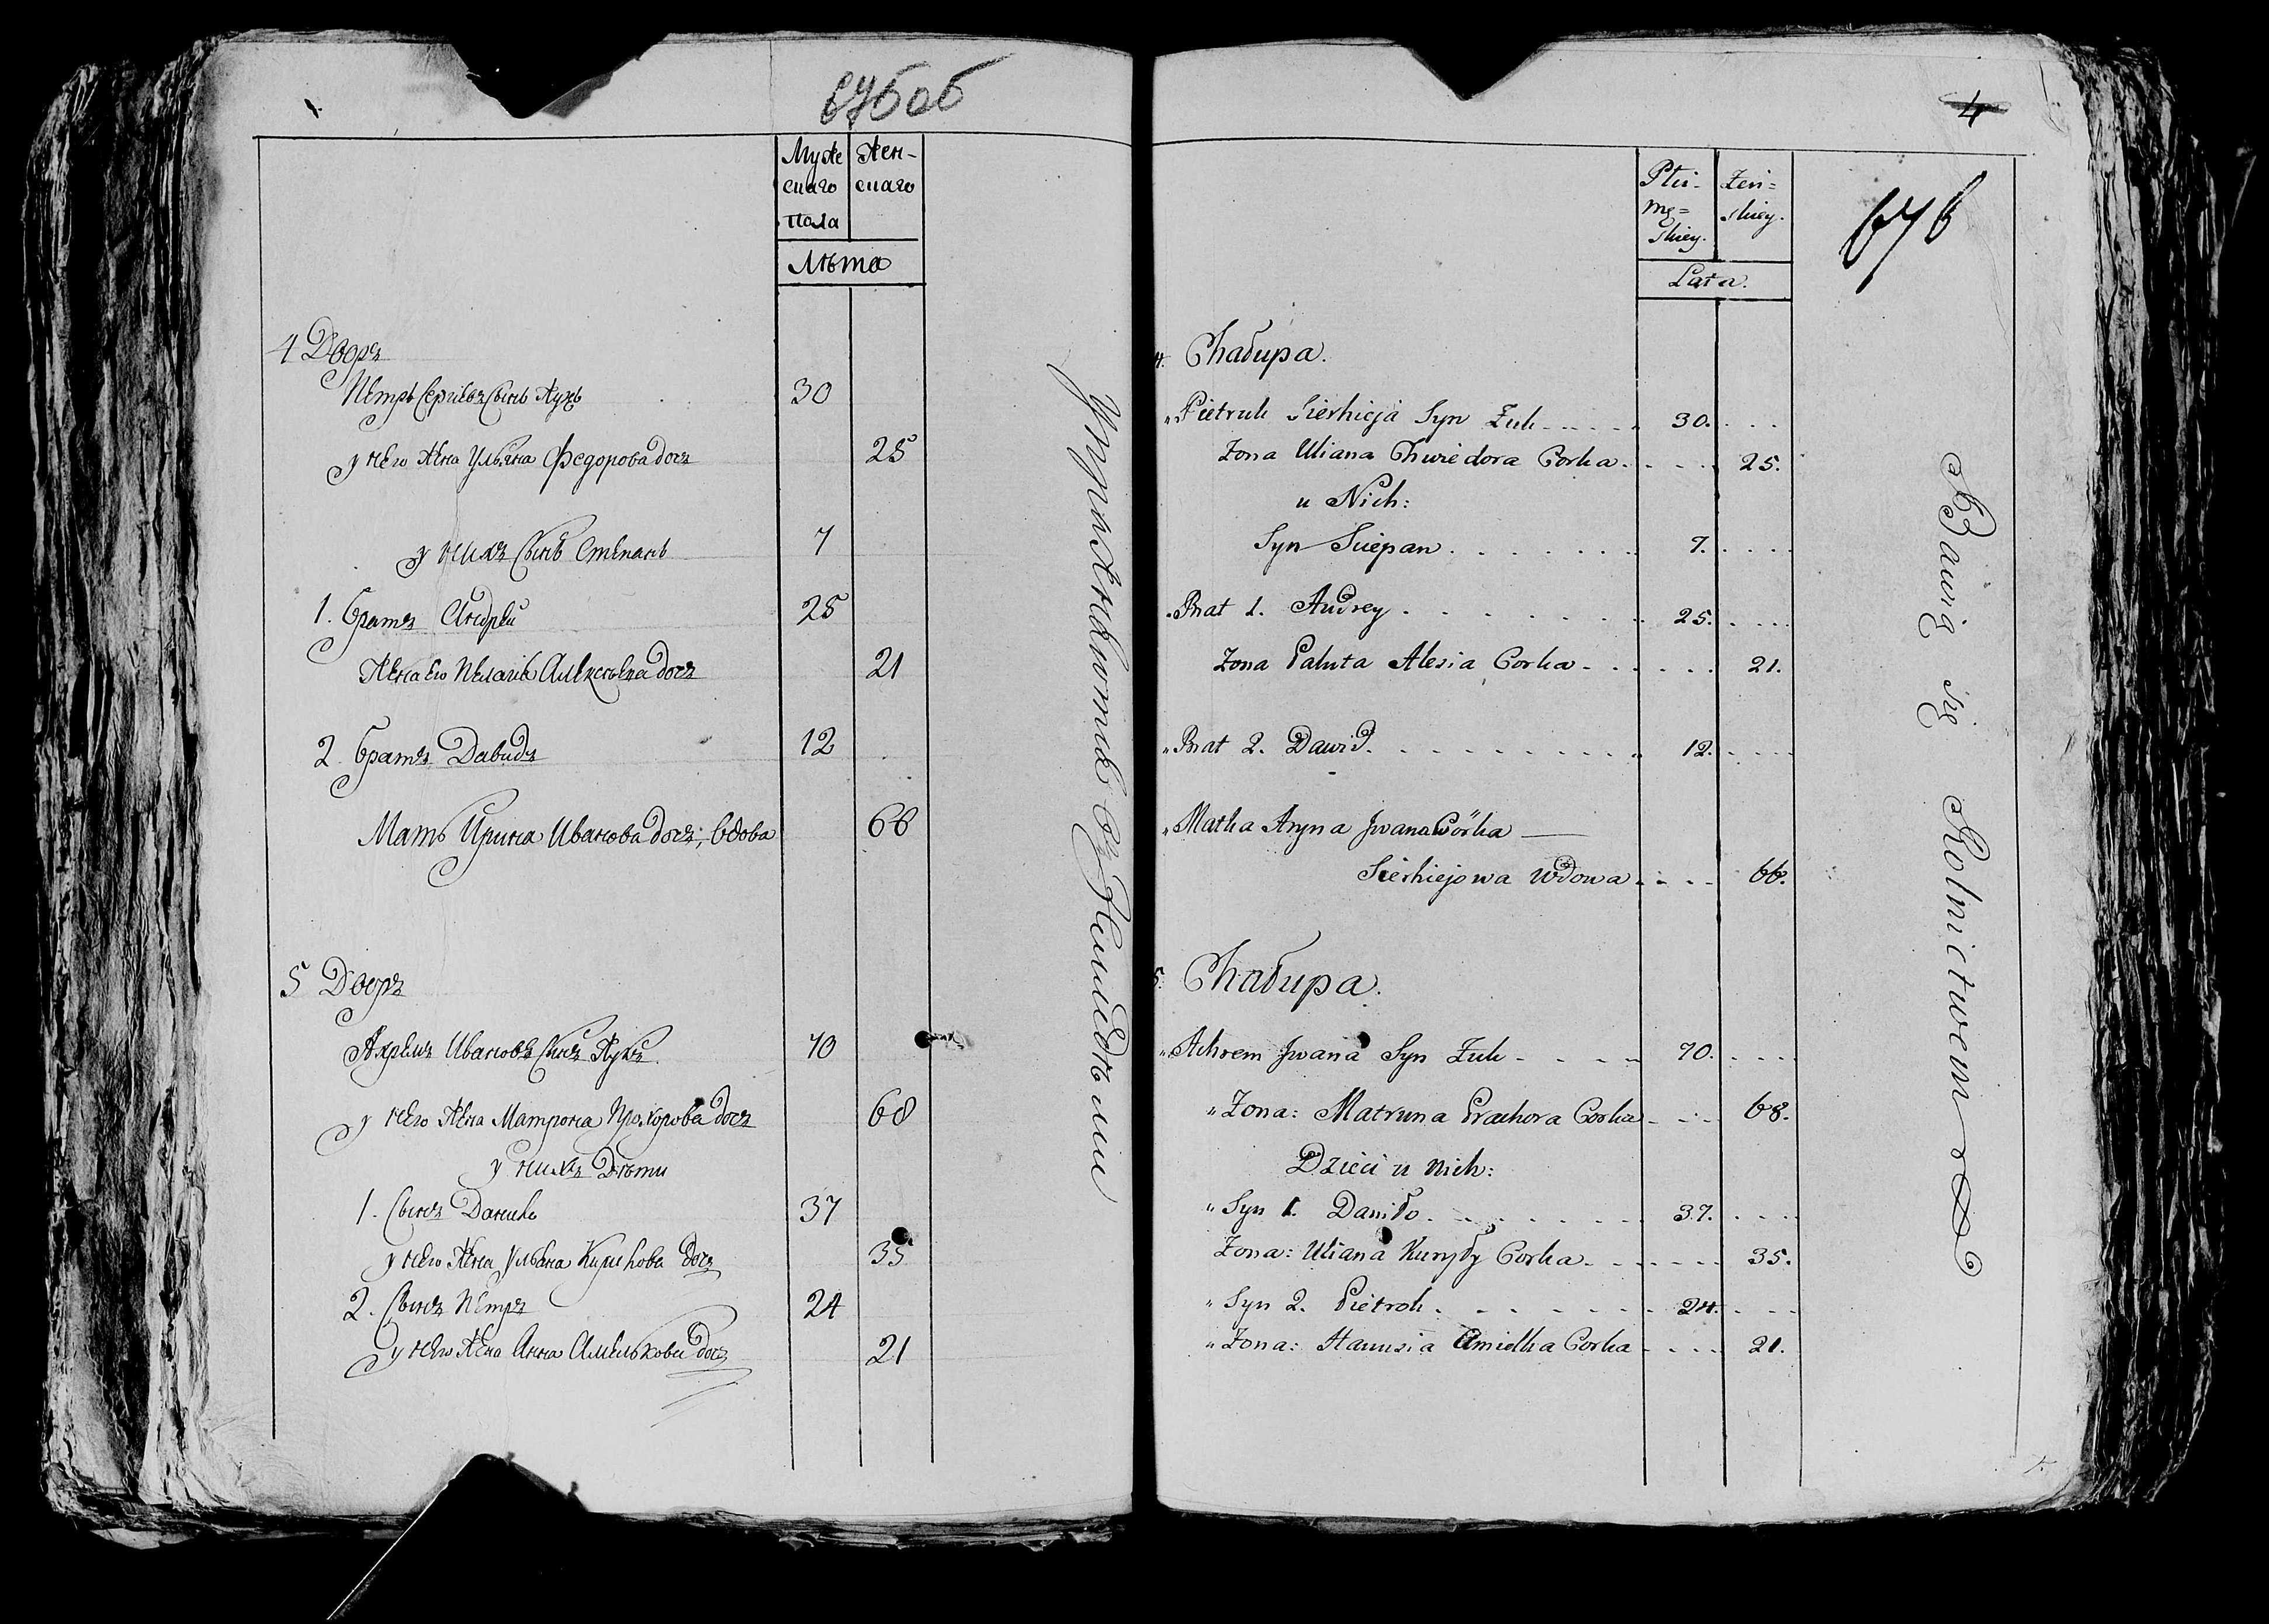 675об
Муже
Жен-
скаго
скаго
пола
Лѣта
4 Дворъ
Петръ Сергѣевъ Сынъ Жукъ 30
у него Жена Ульяна Федорова дочъ 25
у нихъ Сынъ Степанъ 7
1. братъ Андрей 25
Жена его Пелагія Алексѣева дочъ 21
2. братъ Давидъ 12
Мать Ирина Иванова дочъ, вдова 66
5 Дворъ
Ахремъ Ивановъ Сынъ Жукъ 70
у него Жена Матрона Прохорова дочъ 68
у нихъ Дѣти
1. Сынъ Данило 37
у него Жена Ульяна Дочъ 35
2. Сынъ Петръ 24
у него Жена Анна Амелькова дочъ 21
Упражняются Земледѣліемъ
4
676
Płci
Żeń=
mę=
skiey.
skiey.
Lata.
4. Chałupa.
Pietruk Sierhieja Syn Żuk 30.
Żona Uliana Chwiedora Corka 25.
u Nich:
Syn Sciepan 7.
Brat 1. Andrey 25.
Żona Paluta Alexia Corka 21.
Brat 2. Dawid 12.
Matka Aryna Jwana Córka
Sierhiejowa Wdowa 66.
5. Chałupa.
Achrem Jwana Syn Żuk 70.
Żona: Matruna Prachora Corka 68.
Dzieci u nich:
Syn 1. Daniło 37.
Żona: Uliana Kuryły Corka 35.
Syn 2. Pietrok 24.
Żona: Hanusia Amielka Corka 21.
Bawią się Rolnictwem